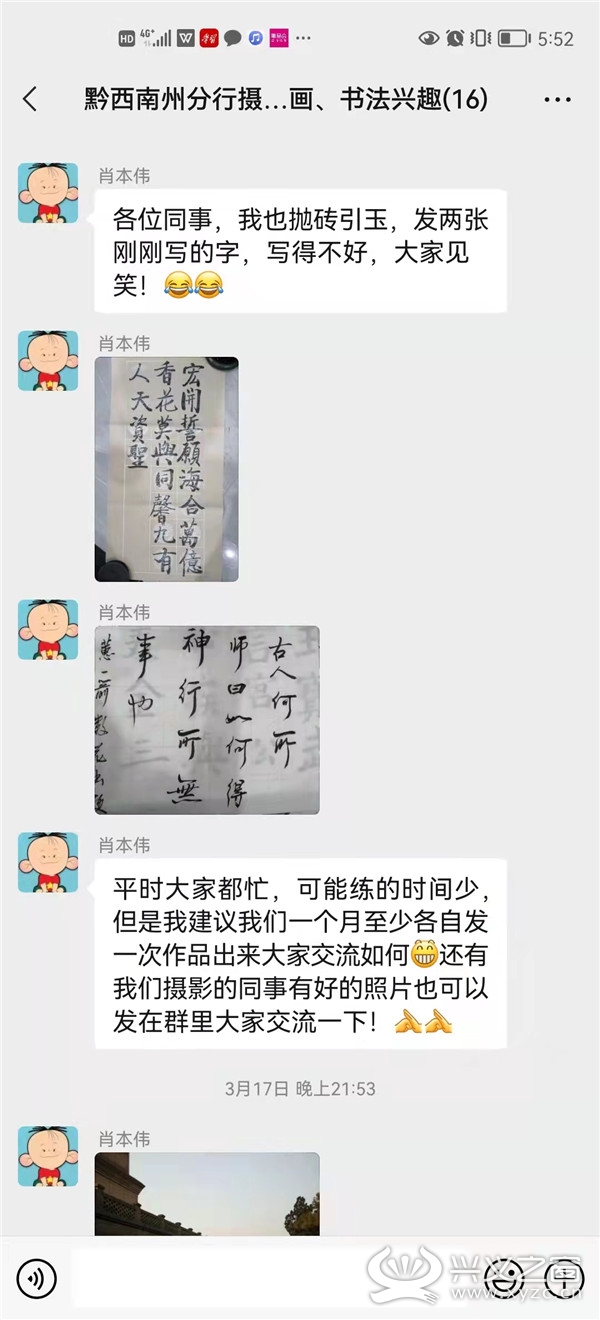 HD 4G 5:52
黔西南州分行摄...画、书法兴趣(16)
肖本伟
各位同事，我也抛砖引玉，发两张
刚刚写的字，写得不好，大家见
笑！
肖本伟
宏開誓願海合萬億
香花莫與同馨九有
人天資聖
肖本伟
古人何所
师曰如何得
神行所無
事也
肖本伟
平时大家都忙，可能练的时间少，
但是我建议我们一个月至少各自发
一次作品出来大家交流如何还有
我们摄影的同事有好的照片也可以
发在群里大家交流一下！
3月17日 晚上21:53
肖本伟
兴义之窗
www.xyzc.cn